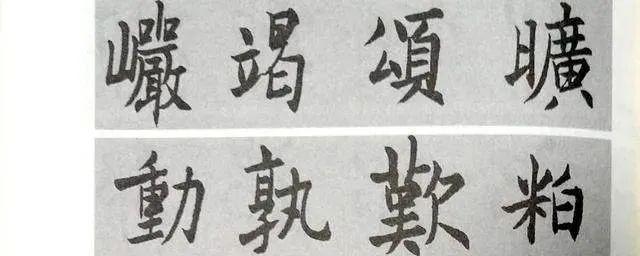 巖竭頌曠
動孰歎粕